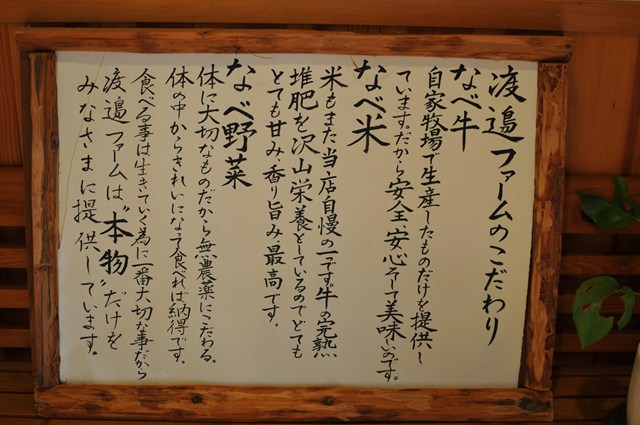 渡邉ファームのこだわり
なべ牛
自家牧場で生産したものだけを提供し
ています。だから安全安心そして美味いのです。
なべ米
米もまた当店自慢の一つです。牛の完熟
堆肥を沢山栄養としているのでとても
とても甘み、香り旨み最高です。
なべ野菜
体に大切なものだから無農薬にこだわる。
体の中からきれいになって食べれば納得です。
食べる事は生きていく為に一番大切な事だから
渡邉ファームは〝本物〟だけを
みなさまに提供しています。